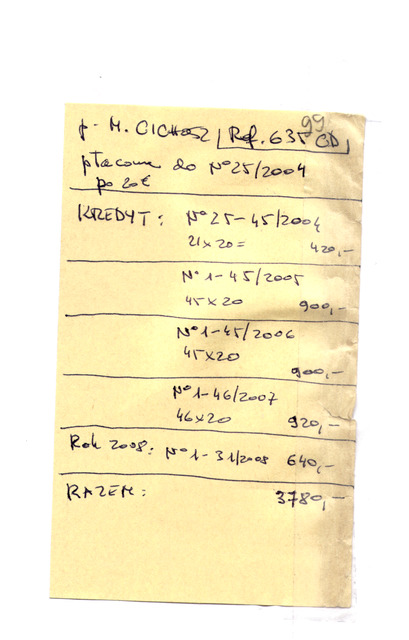 99
p. M. CICHOSZ Ref. 635 CD
płacone do N°25/2004
po 20€
KREDYT: N°25-45/2004
21x20= 420,-
N°1-45/2005
45x20 900,-
N°1-45/2006
45x20
900,-
N°1-46/2007
46x20 920,-
Rok 2008: N°1-31/2008 640,-
RAZEM: 3780,-